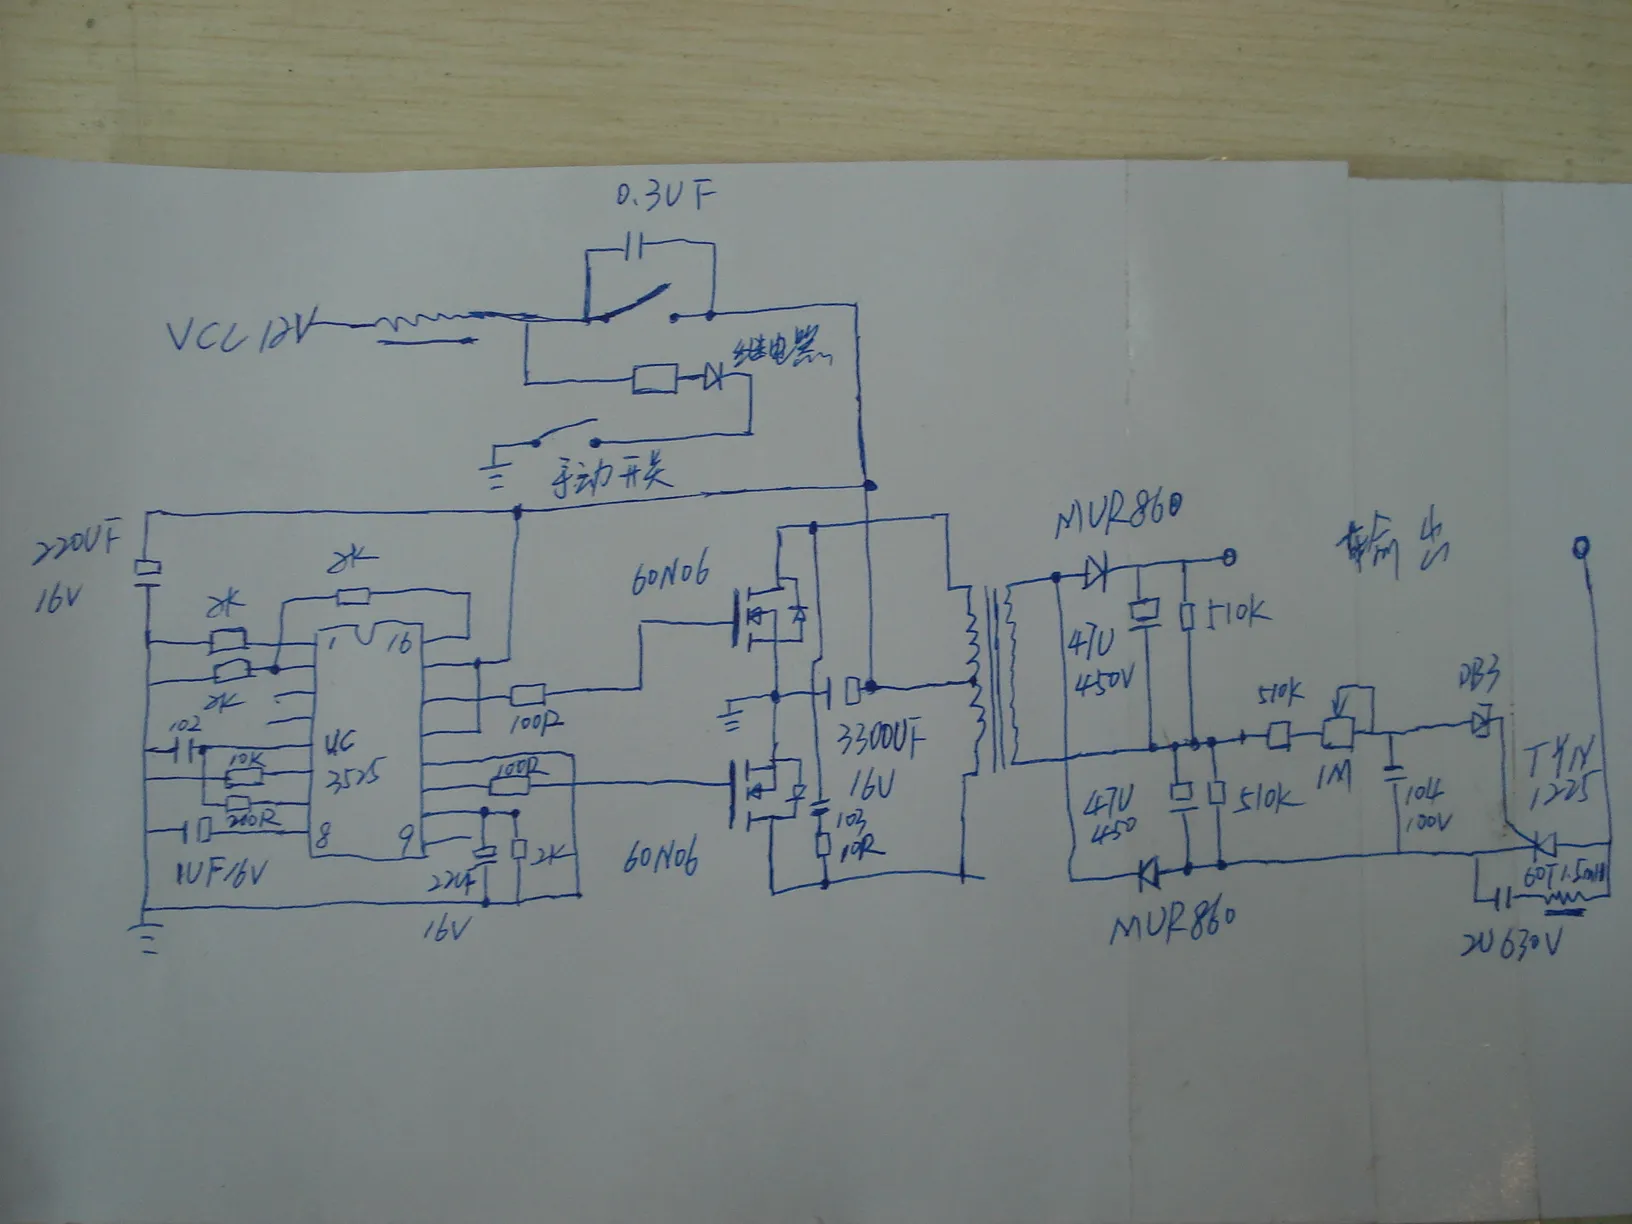 0.3UF
VCC 12V
继电器
手动开关
220UF
16V
2K
2K
2K
1
16
102
10K
200R
UC
3525
8
9
1UF16V
100R
100R
22UF
16V
2K
60N06
60N06
3300UF
16V
103
10R
MUR860
输出
47U
450V
510K
510K
1M
DB3
47U
450
510K
104
100V
TYN
1225
60T1.5mH
MUR860
2U630V